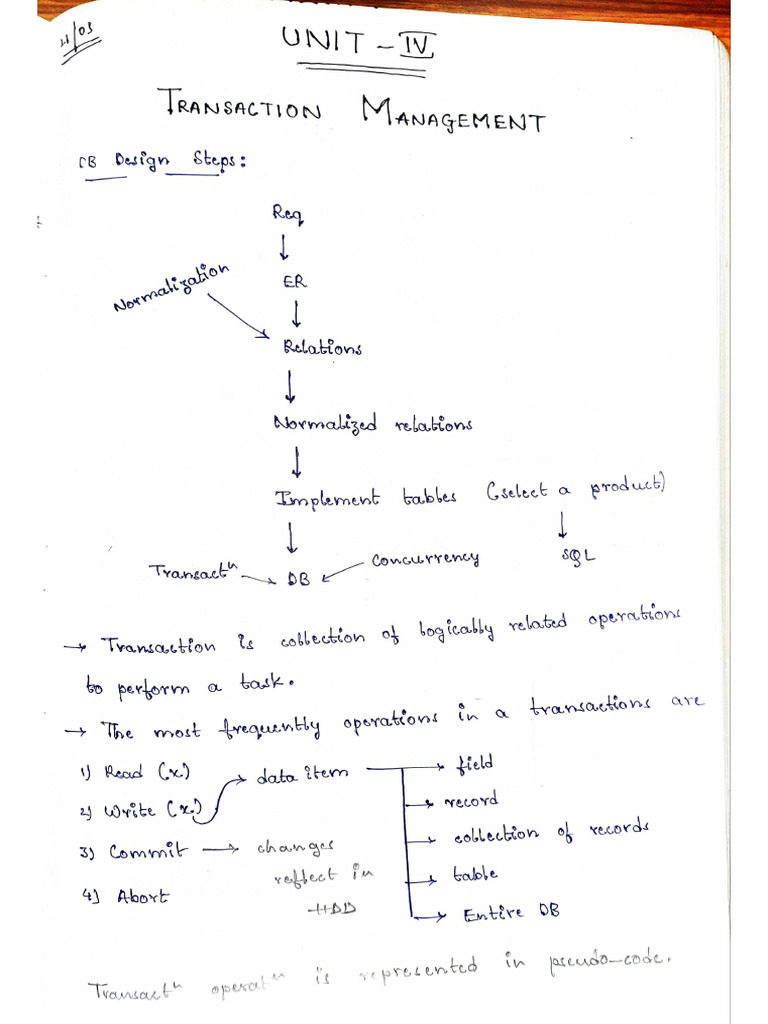 21/03
UNIT - IV
TRANSACTION MANAGEMENT
DB Design Steps:
Req
↓
ER
Normalization
↓
Relations
↓
Normalized relations
↓
Implement tables (select a product)
↓ ↓
Transactⁿ → DB ← Concurrency SQL
→ Transaction is collection of logically related operations
to perform a task.
→ The most frequently operations in a transactions are
1) Read (x) data item → field
2) Write (x) → record
3) Commit → changes → collection of records
reflect in → table
4) Abort HDD → Entire DB
Transactⁿ operatⁿ is represented in pseudo-code.